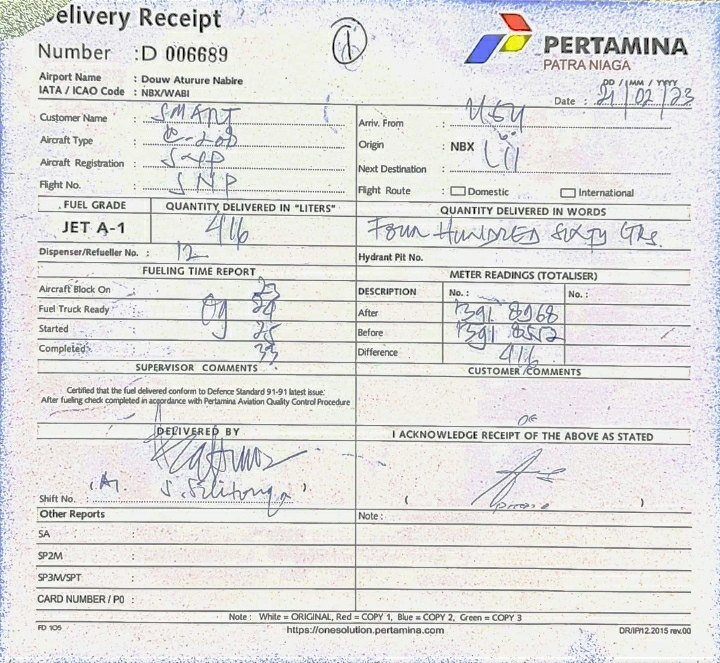 Delivery Receipt
Number : D 006689
PERTAMINA
PATRA NIAGA
Airport Name : Douw Aturure Nabire
IATA / ICAO Code : NBX/WABI
DD / MM / YYYY
Date : 21 02 23
Customer Name : SMART
Aircraft Type : C-208
Aircraft Registration : SNP
Flight No. : SNP
Arriv. From :
Origin : NBX
Next Destination :
Flight Route : Domestic International
FUEL GRADE QUANTITY DELIVERED IN "LITERS" QUANTITY DELIVERED IN WORDS
JET A-1 416 FOUR HUNDRED SIXTY LTRS.
Dispenser/Refueller No. : 12 Hydrant Pit No.
FUELING TIME REPORT METER READINGS (TOTALISER)
Aircraft Block On 23
Fuel Truck Ready 09 24
Started 25
Completed 33
DESCRIPTION No. : No. :
After 391 8968
Before 391 8552
Difference 416
SUPERVISOR COMMENTS CUSTOMER COMMENTS
Certified that the fuel delivered conform to Defence Standard 91-91 latest issue.
After fueling check completed in accordance with Pertamina Aviation Quality Control Procedure
DELIVERED BY I ACKNOWLEDGE RECEIPT OF THE ABOVE AS STATED
Shift No. :
( )
Other Reports Note :
SA :
SP2M :
SP3M/SPT :
CARD NUMBER / PO :
Note : White = ORIGINAL, Red = COPY 1, Blue = COPY 2, Green = COPY 3
FD 105 https://onesolution.pertamina.com DR/IP/12.2015 rev.00